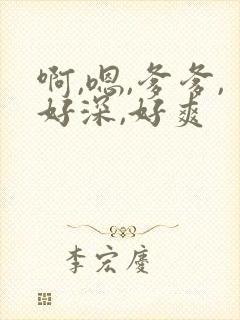 啊,嗯,爹爹,
好深,好爽
李宏庆